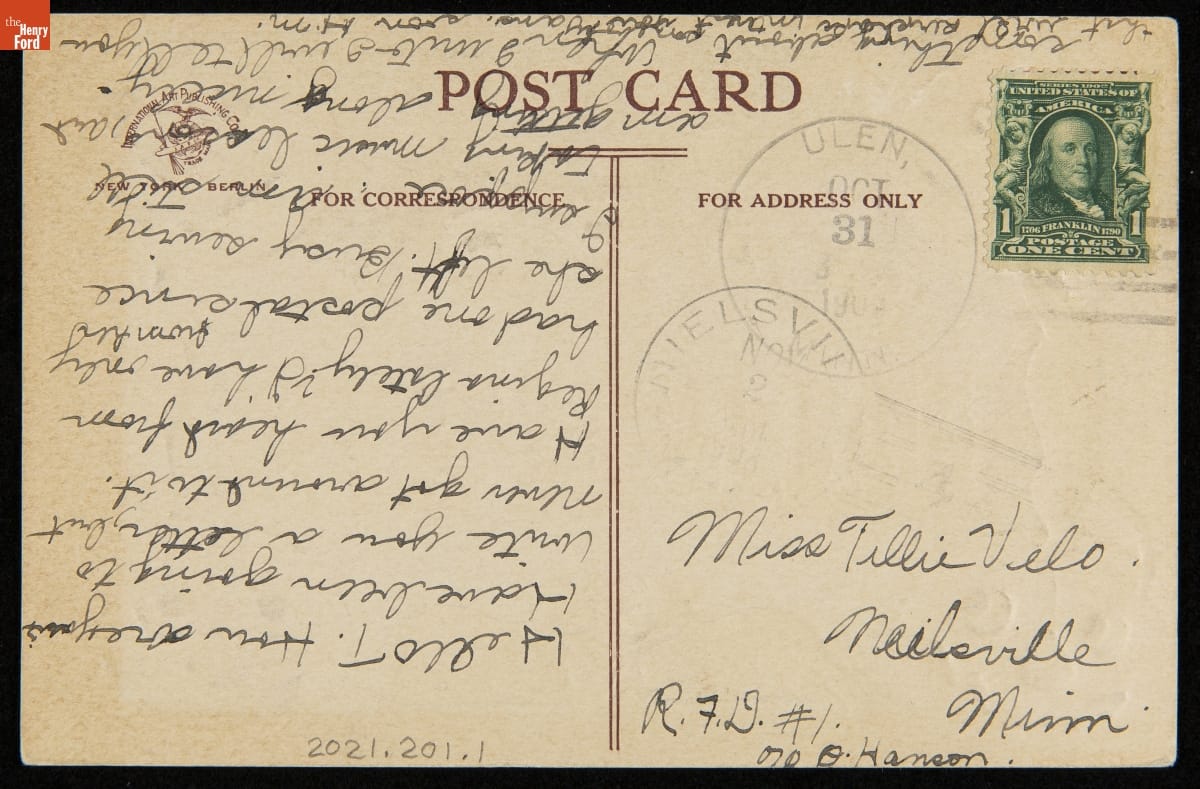 the
Henry
Ford
POST CARD
INTERNATIONAL ART PUBLISHING CO.
TRADE MARK
NEW YORK BERLIN
FOR CORRESPONDENCE
FOR ADDRESS ONLY
ULEN,
OCT
31
NIELSVILLE
NOV
2
MINN
SERIES 1902
UNITED STATES OF
AMERICA
1 1
1706 FRANKLIN 1790
POSTAGE
ONE CENT
Hello T. How are you
Have been going to
write you a letter, but
never got around to it.
Have you heard from
Regina lately? I have only
had one postal from her since
she left. Busy sewing
I suppose. Am still
taking music lessons and
am getting along nicely
When I write I will tell you
something about
that will
soon
Miss Tillie Velo.
Neilsville
Minn.
R.F.D. #1.
c/o O. Hanson.
2021.201.1